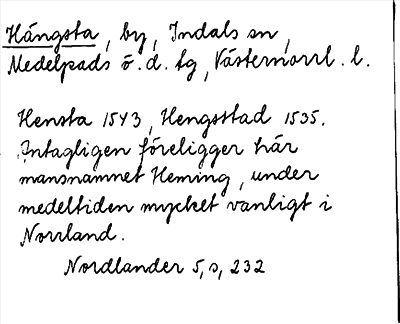 Hängsta, by, Indals sn,
Medelpads ö. d. tg, Västernorrl. l.
Hensta 1543, Hengsttad 1535.
Antagligen föreligger här
mansnamnet Heming, under
medeltiden mycket vanligt i
Norrland.
Nordlander 5, s, 232